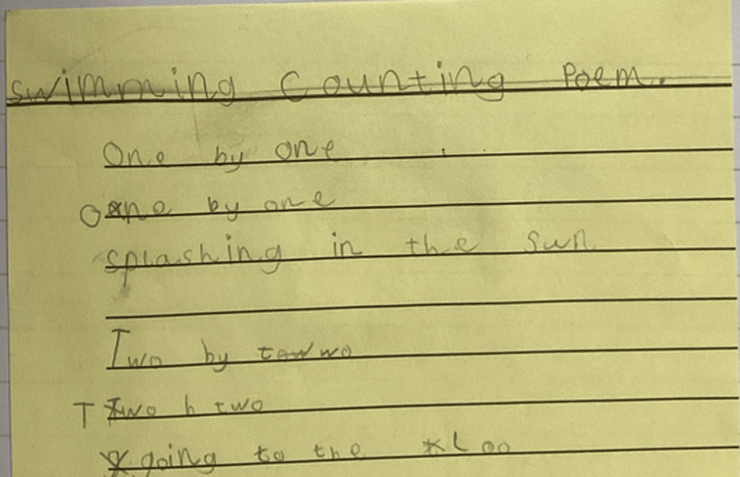 Swimming Counting Poem.
One by one
One by one
splashing in the sun
Two by two
Two b two
going to the Loo